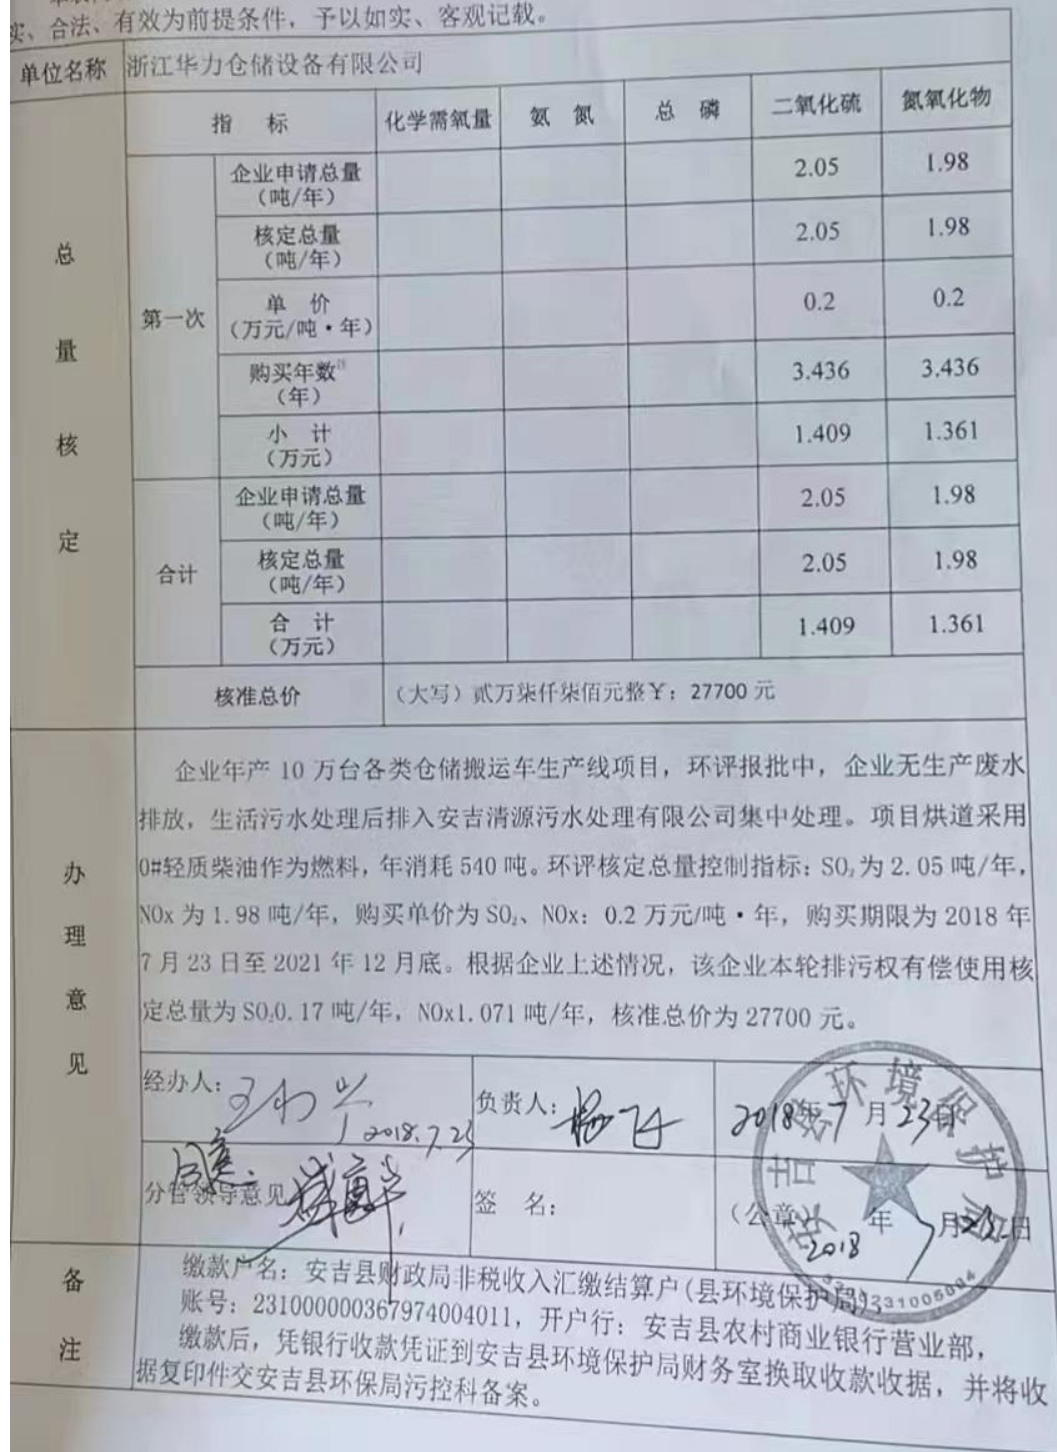 实、合法、有效为前提条件，予以如实、客观记载。
单位名称 浙江华力仓储设备有限公司
总量核定
指 标 化学需氧量 氨 氮 总 磷 二氧化硫 氮氧化物
第一次
企业申请总量（吨/年） 2.05 1.98
核定总量（吨/年） 2.05 1.98
单 价（万元/吨·年） 0.2 0.2
购买年数注（年） 3.436 3.436
小 计（万元） 1.409 1.361
合计
企业申请总量（吨/年） 2.05 1.98
核定总量（吨/年） 2.05 1.98
合 计（万元） 1.409 1.361
核准总价 （大写）贰万柒仟柒佰元整￥：27700 元
办理意见
企业年产 10 万台各类仓储搬运车生产线项目，环评报批中，企业无生产废水
排放，生活污水处理后排入安吉清源污水处理有限公司集中处理。项目烘道采用
0#轻质柴油作为燃料，年消耗 540 吨。环评核定总量控制指标：SO₂为 2.05 吨/年，
NOx 为 1.98 吨/年，购买单价为 SO₂、NOx：0.2 万元/吨·年，购买期限为 2018 年
7 月 23 日至 2021 年 12 月底。根据企业上述情况，该企业本轮排污权有偿使用核
定总量为 SO₂0.17 吨/年，NOx1.071 吨/年，核准总价为 27700 元。
经办人： 2018.7.23
负责人：
2018年7月23日
分管领导意见
签 名：
（公章）
2018 年 7 月23日
安吉县环境保护局
备注
缴款户名：安吉县财政局非税收入汇缴结算户(县环境保护局)，
账号：231000000367974004011，开户行：安吉县农村商业银行营业部，
缴款后，凭银行收款凭证到安吉县环境保护局财务室换取收款收据，并将收
据复印件交安吉县环保局污控科备案。